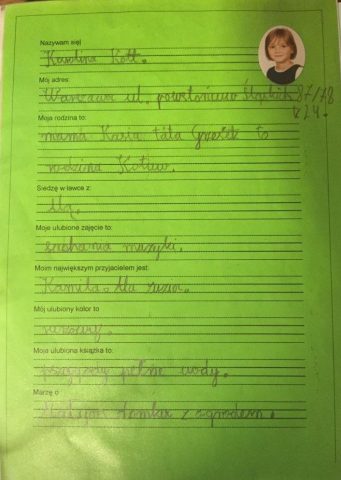 Nazywam się
Karolina Kott.
Mój adres:
Warszawa ul. powstańców Śląskich 87/78
Moja rodzina to:
mama Kasia tata Grzesiek to
rodzina Kotów.
Siedzę w ławce z:
Alą.
Moje ulubione zajęcie to:
słuchania muzyki.
Moim największym przyjacielem jest:
Kamila
Mój ulubiony kolor to
Moja ulubiona książka to:
przygody pełne wody.
Marzę o
domku z ogrodem.